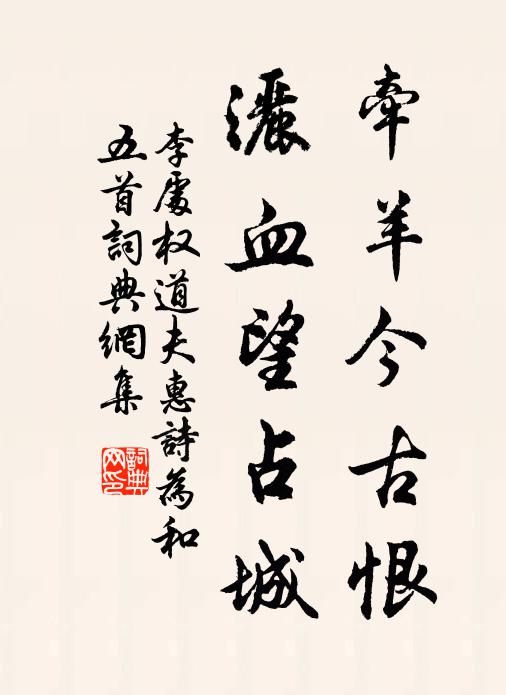 牽羊今古恨
灑血望占城
李處权道夫惠詩為和
五首詞典網集
詞典网印